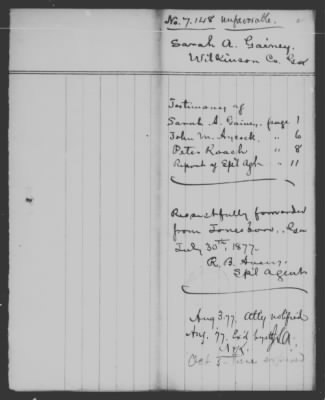 No. 7.148 unprovable.
Sarah A. Gainey,
Wilkinson Co. Geo
Testimony of
Sarah A. Gainey, page 1
John M. Aycock, " 6
Peter Roach " 8
Report of Sp'l Agt " 11
Respectfully forwarded
from Jonesboro, Geo
July 30th, 1877.
R. B. Avery,
Sp'l Agent
Aug 3. 77. Atty notified
Aug. 77.
Oct 3- time expired